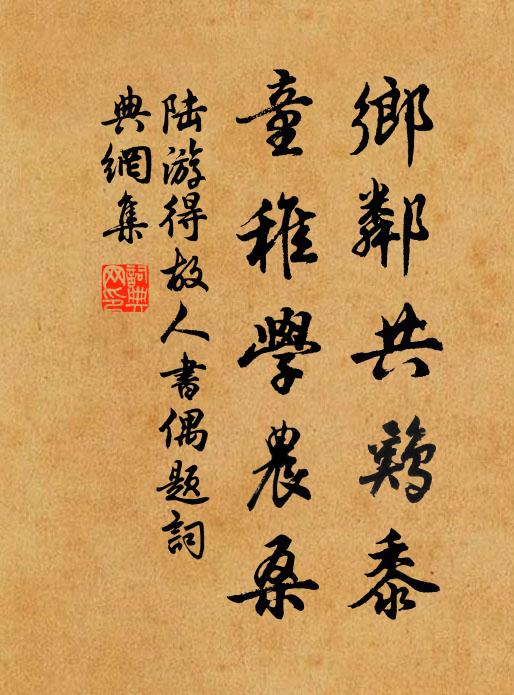 鄉鄰共鷄黍
童稚學農桑
陸游得故人書偶題詞
典網集
詞典
网印